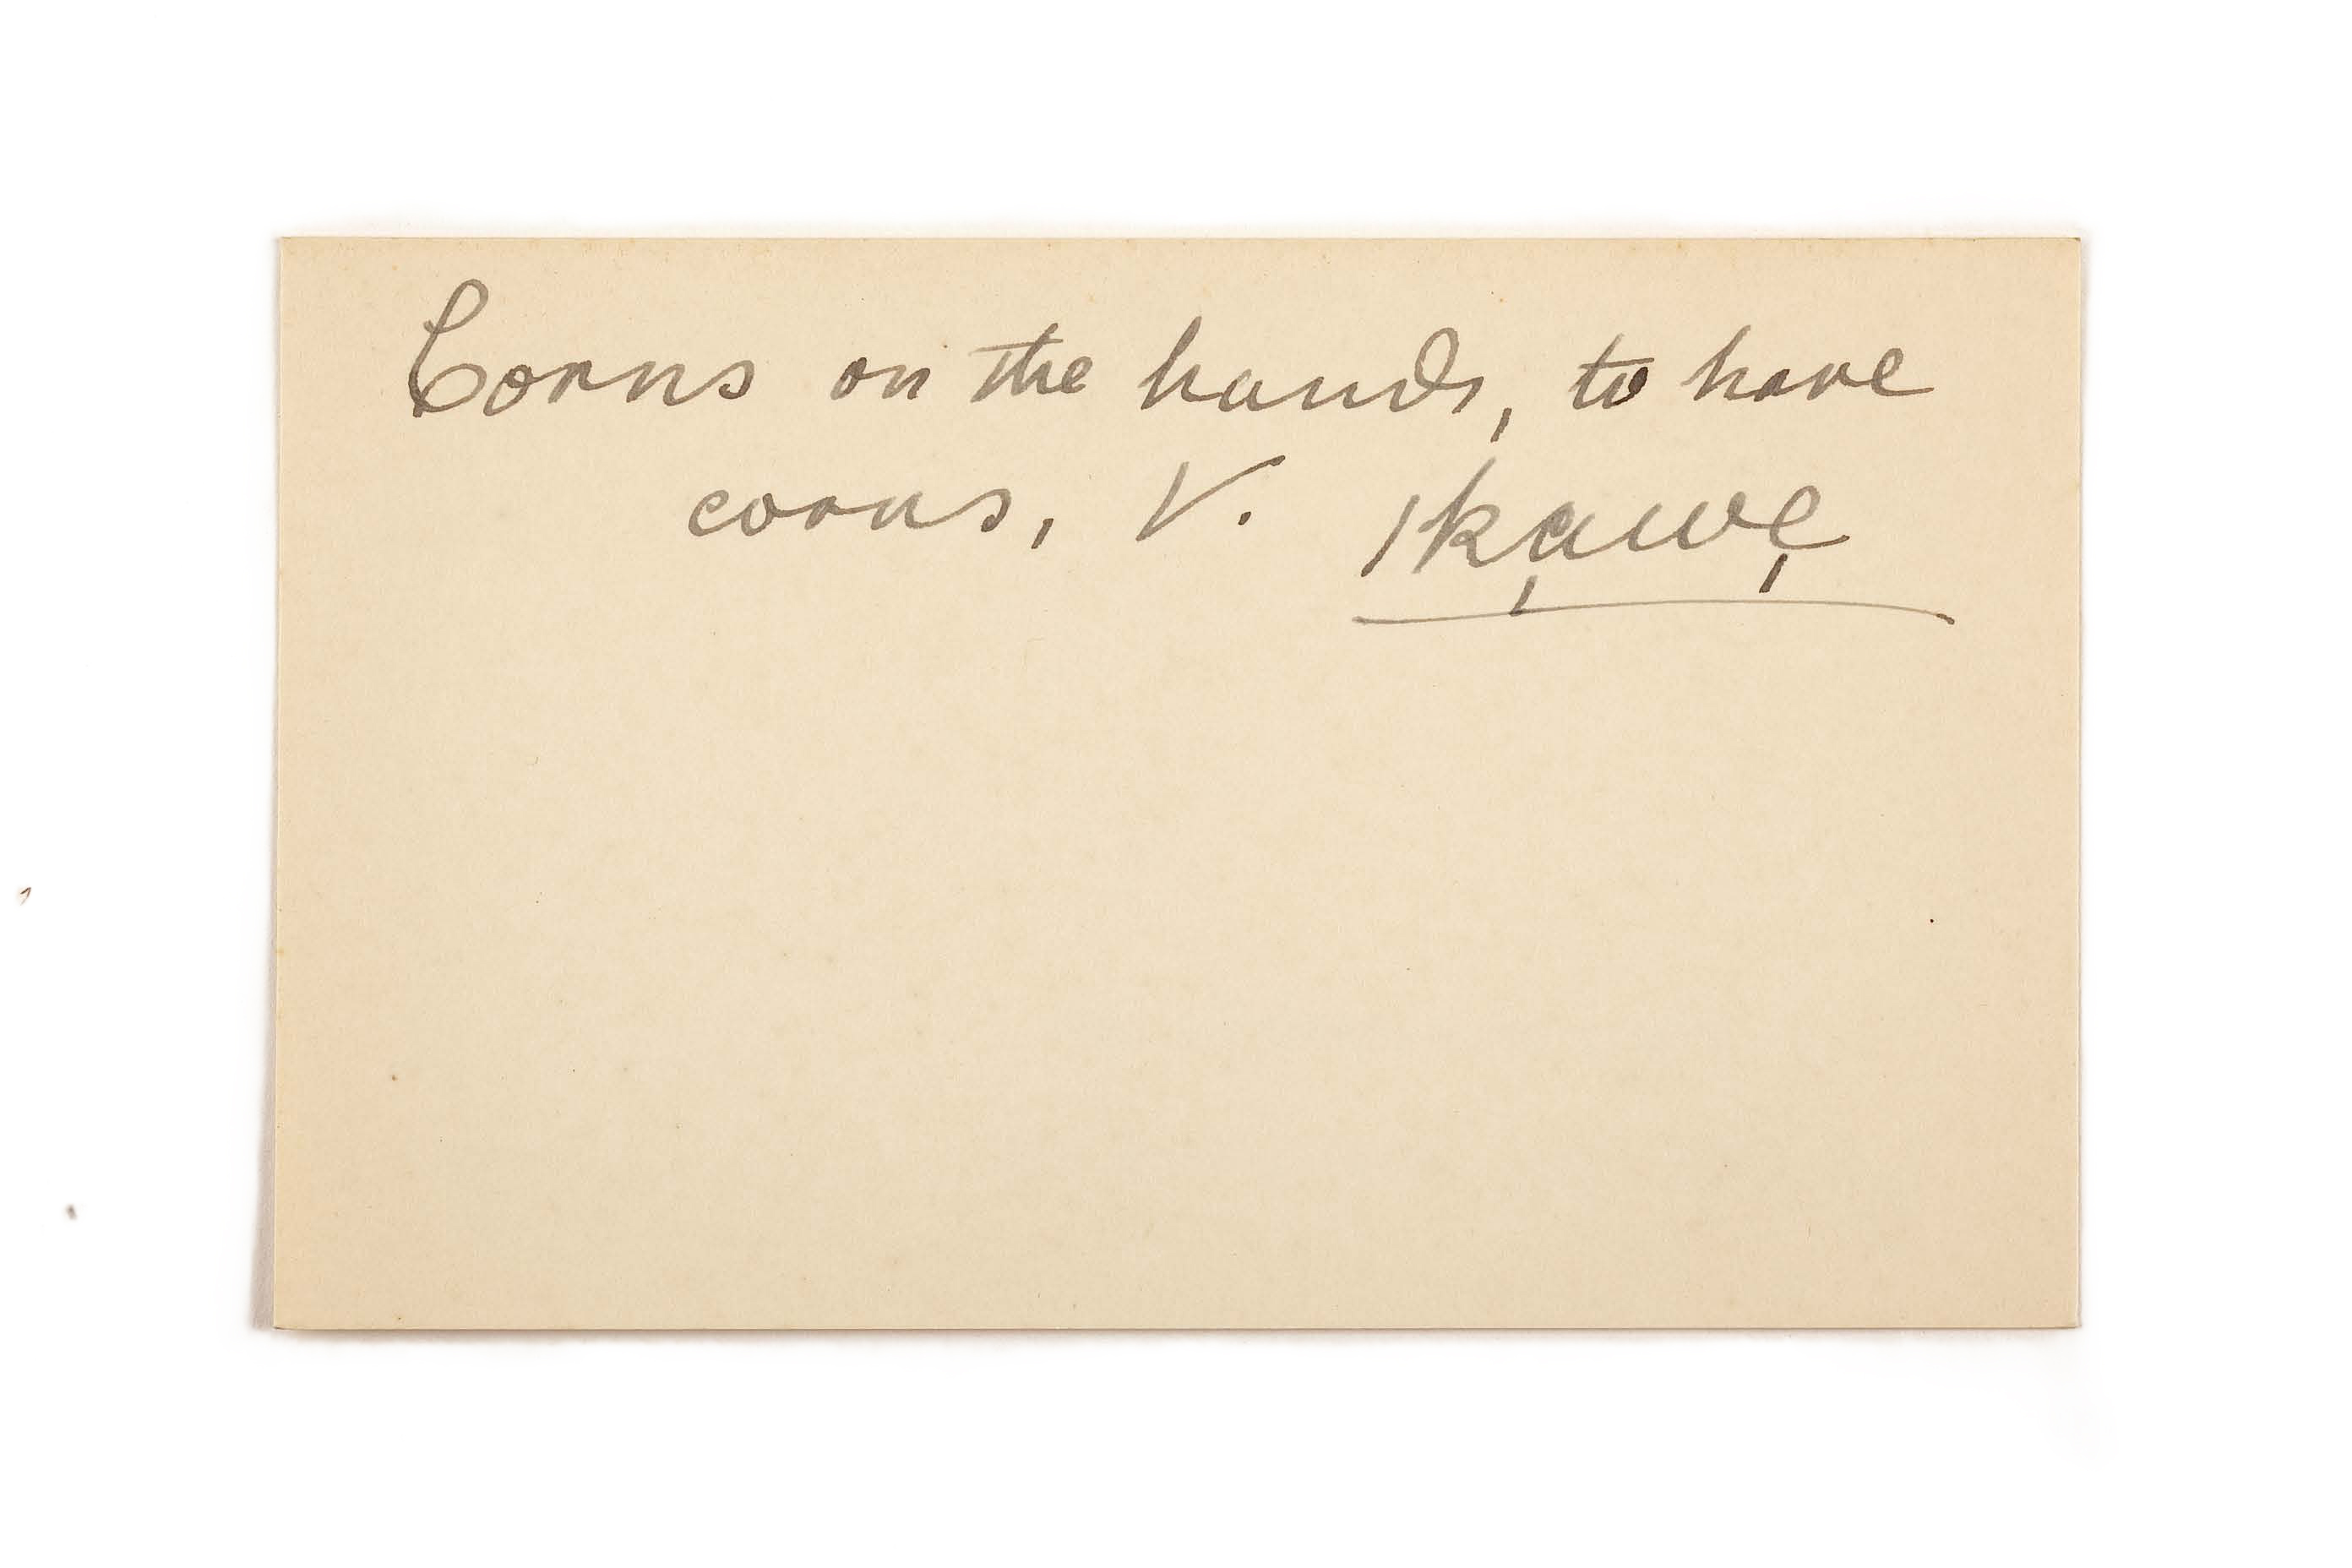 Corns on the hands, to have
corns, V. ıka̩we̩